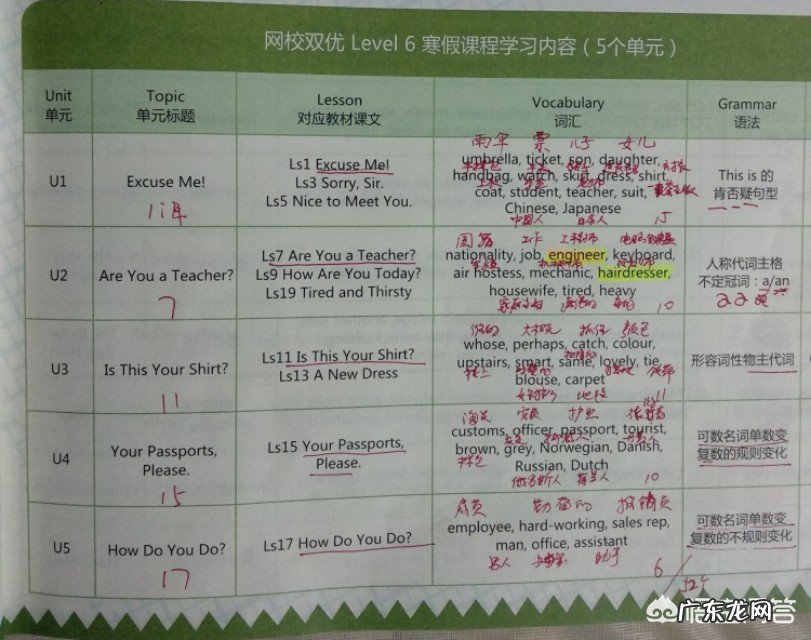 网校双优 Level 6 寒假课程学习内容（5个单元）
Unit
单元
Topic
单元标题
Lesson
对应教材课文
Vocabulary
词汇
Grammar
语法
U1
Excuse Me!
Ls1 Excuse Me!
Ls3 Sorry, Sir.
Ls5 Nice to Meet You.
雨伞 票 儿子 女儿
umbrella, ticket, son, daughter,
handbag, watch, skirt, dress, shirt,
coat, student, teacher, suit,
Chinese, Japanese
中国人 日本人 15
This is 的
肯否疑句型
U2
Are You a Teacher?
7
Ls7 Are You a Teacher?
Ls9 How Are You Today?
Ls19 Tired and Thirsty
国籍 工作 工程师
nationality, job, engineer, keyboard,
air hostess, mechanic, hairdresser,
housewife, tired, heavy
10
人称代词主格
不定冠词：a/an
U3
Is This Your Shirt?
11
Ls11 Is This Your Shirt?
Ls13 A New Dress
谁的 大概 抓住 颜色
whose, perhaps, catch, colour,
upstairs, smart, same, lovely, tie,
blouse, carpet
地毯 11
形容词性物主代词
U4
Your Passports,
Please.
15
Ls15 Your Passports,
Please.
海关 官员 护照
customs, officer, passport, tourist,
brown, grey, Norwegian, Danish,
Russian, Dutch
俄罗斯人 荷兰人 10
可数名词单数变
复数的规则变化
U5
How Do You Do?
17
Ls17 How Do You Do?
雇员 勤奋的 推销员
employee, hard-working, sales rep,
man, office, assistant
男人 办公室 助手
6
52个
可数名词单数变
复数的不规则变化
广东龙网